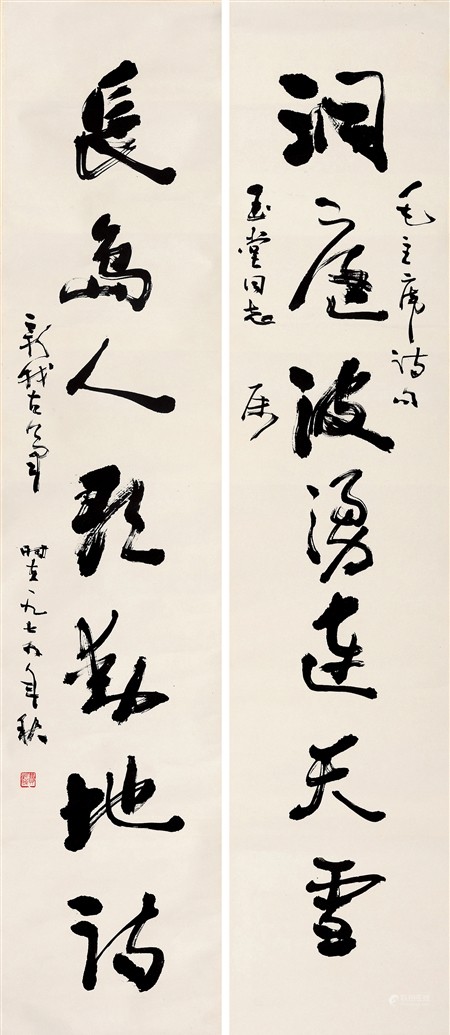 毛主席詩句
洞庭波湧連天雪
玉堂同志 属
長島人歌動地詩
新我左筆 時在一九七九年秋